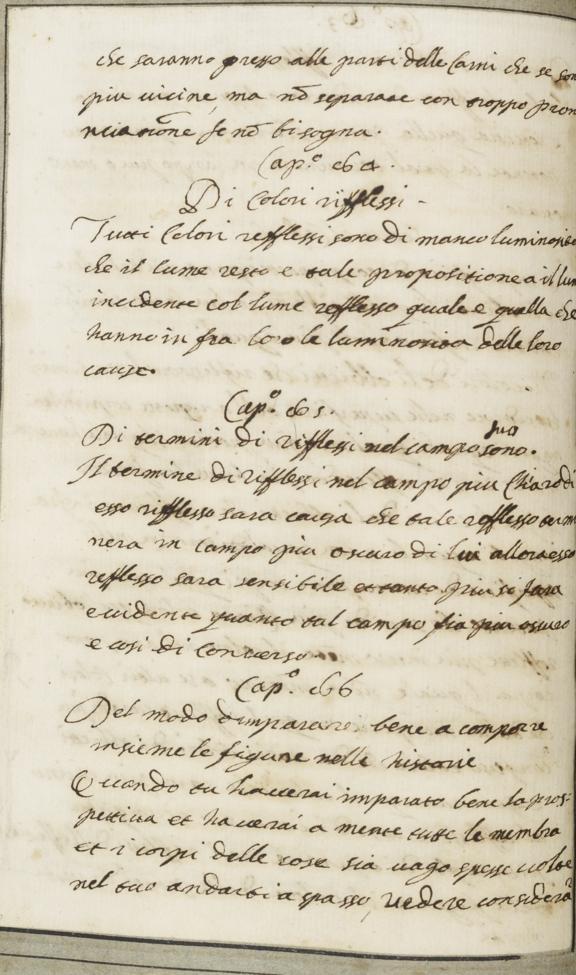 che saranno presso alle parti delle Carni che se son
piu uicine, ma nō separare con troppo pron
nciatiōne se nō bisogna.
Cap.º 164.
Di Colori rifflessi -
Tutti Colori refflessi sono di manco luminosita
che il lume resto e tale propositione a il lum
incidente col lume refflesso quale e quella che
hanno in fra loro le luminosita delle loro
cause.
Cap.º 165.
Di termini di rifflessi nel campo suo
Il termine di rifflessi nel campo piu Chiaro di
esso rifflesso sara causa che tale refflesso term
nera in campo piu oscuro di lui allora esso
refflesso sara sensibile et tanto piu se fara
euidente quanto tal campo fia piu oscuro
e cosi di Conuerso
Cap.º 166
Del modo d'imparare bene a comporre
insieme le figure nelle historie
Quando tu hauerai imparato bene la pros-
pettiua et hauerai a mente tutte le membra
et i corpi delle cose sia uago spesse uolte
nel tuo andarti a spasso, uedere considera